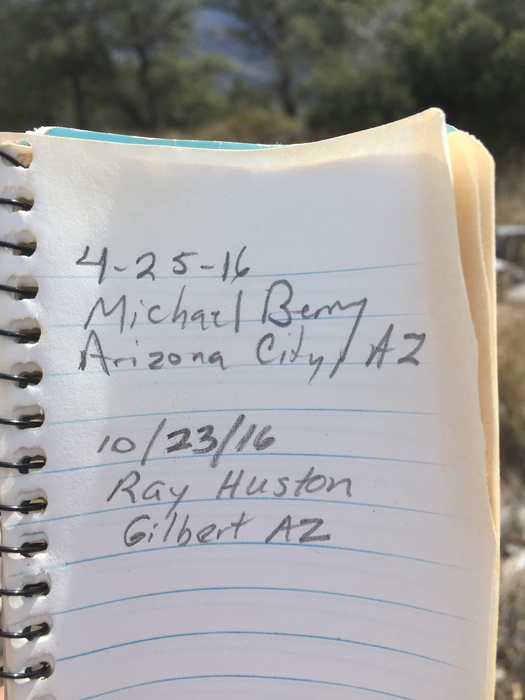 4-25-16
Michael Berry
Arizona City, AZ
10/23/16
Ray Huston
Gilbert AZ